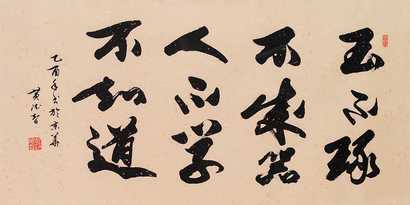 玉不琢
不成器
人不学
不知道
乙酉年书於京华